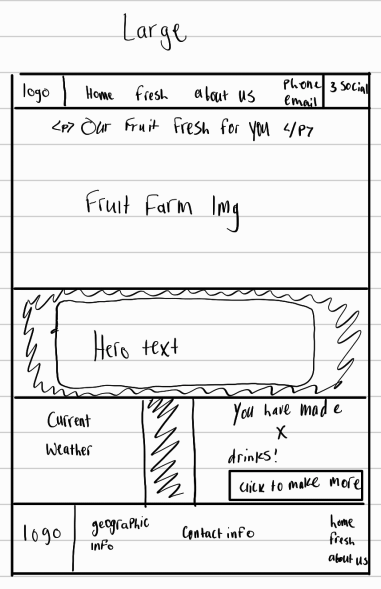 Large
logo
Home fresh about us
Phone
email
3 social
<p> Our Fruit Fresh for you </p>
Fruit Farm Img
Hero text
Current
Weather
You have made
X
drinks!
click to make more
logo
geographic
info
Contact info
home
fresh
about us